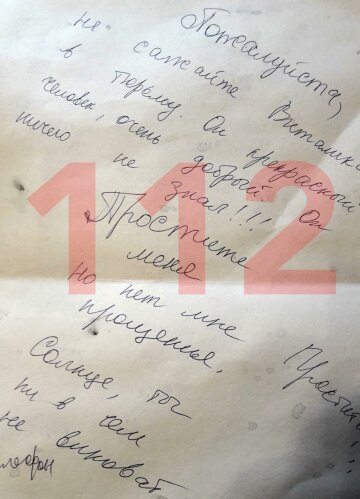 Пожалуйста,
не сажайте Виташку
в тюрьму. Он прекрасной
человек, очень добрый! Он
ничего не знал!!!
112
Простите
меня
но нет мне
прощенье,
Солнце, ты
ни в чем
не виноват